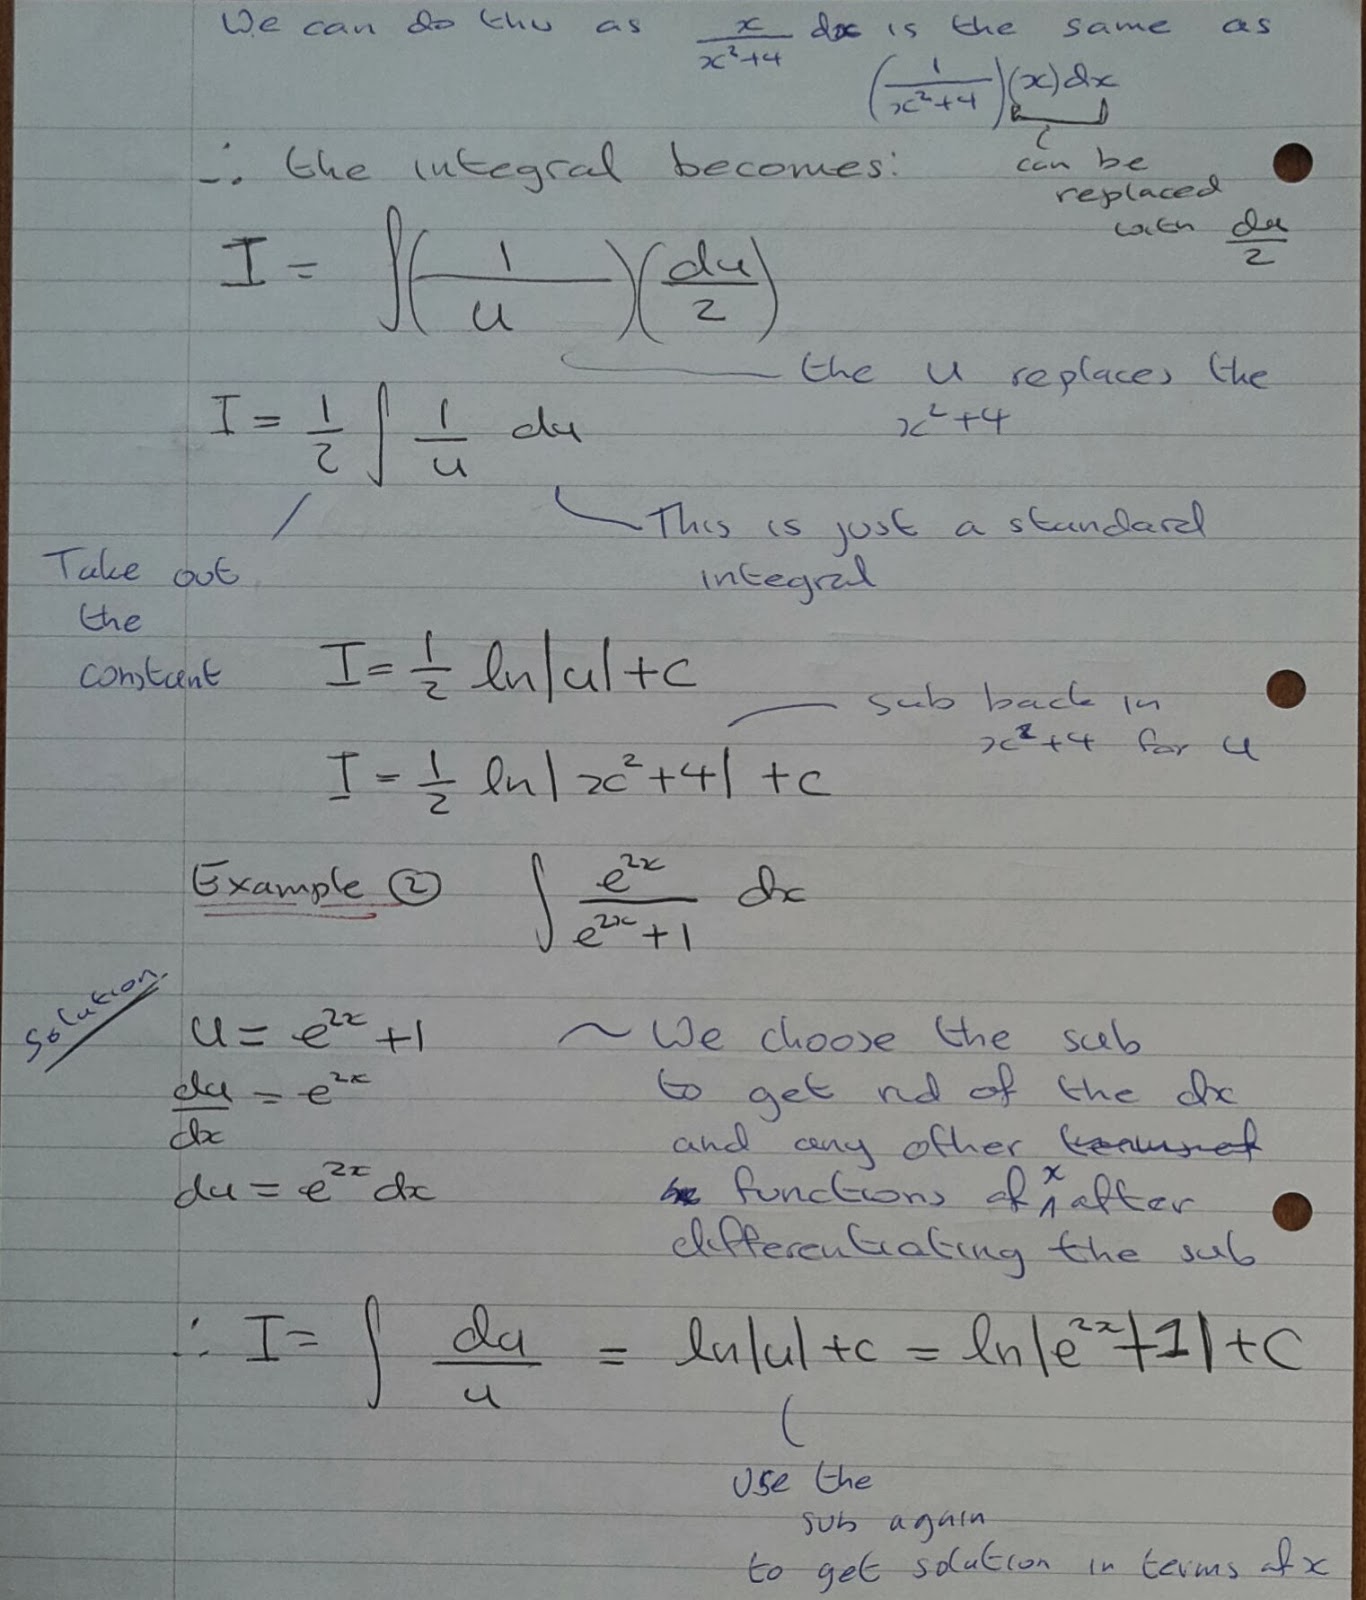 We can do this as x/(x²+4) dx is the same as
(1/(x²+4))(x)dx
can be
replaced
with du/2
∴ the integral becomes:
I = ∫(1/u)(du/2)
the u replaces the
x²+4
I = 1/2 ∫ 1/u du
This is just a standard
integral
Take out
the
constant
I = 1/2 ln|u| + c
sub back in
x²+4 for u
I = 1/2 ln|x²+4| + c
Example ② ∫ e^(2x)/(e^(2x)+1) dx
Solution
u = e^(2x) + 1
du/dx = e^(2x)
du = e^(2x) dx
~ We choose the sub
to get rid of the dx
and any other
functions of x after
differentiating the sub
∴ I = ∫ du/u = ln|u| + c = ln|e^(2x)+1| + c
use the
sub again
to get solution in terms of x